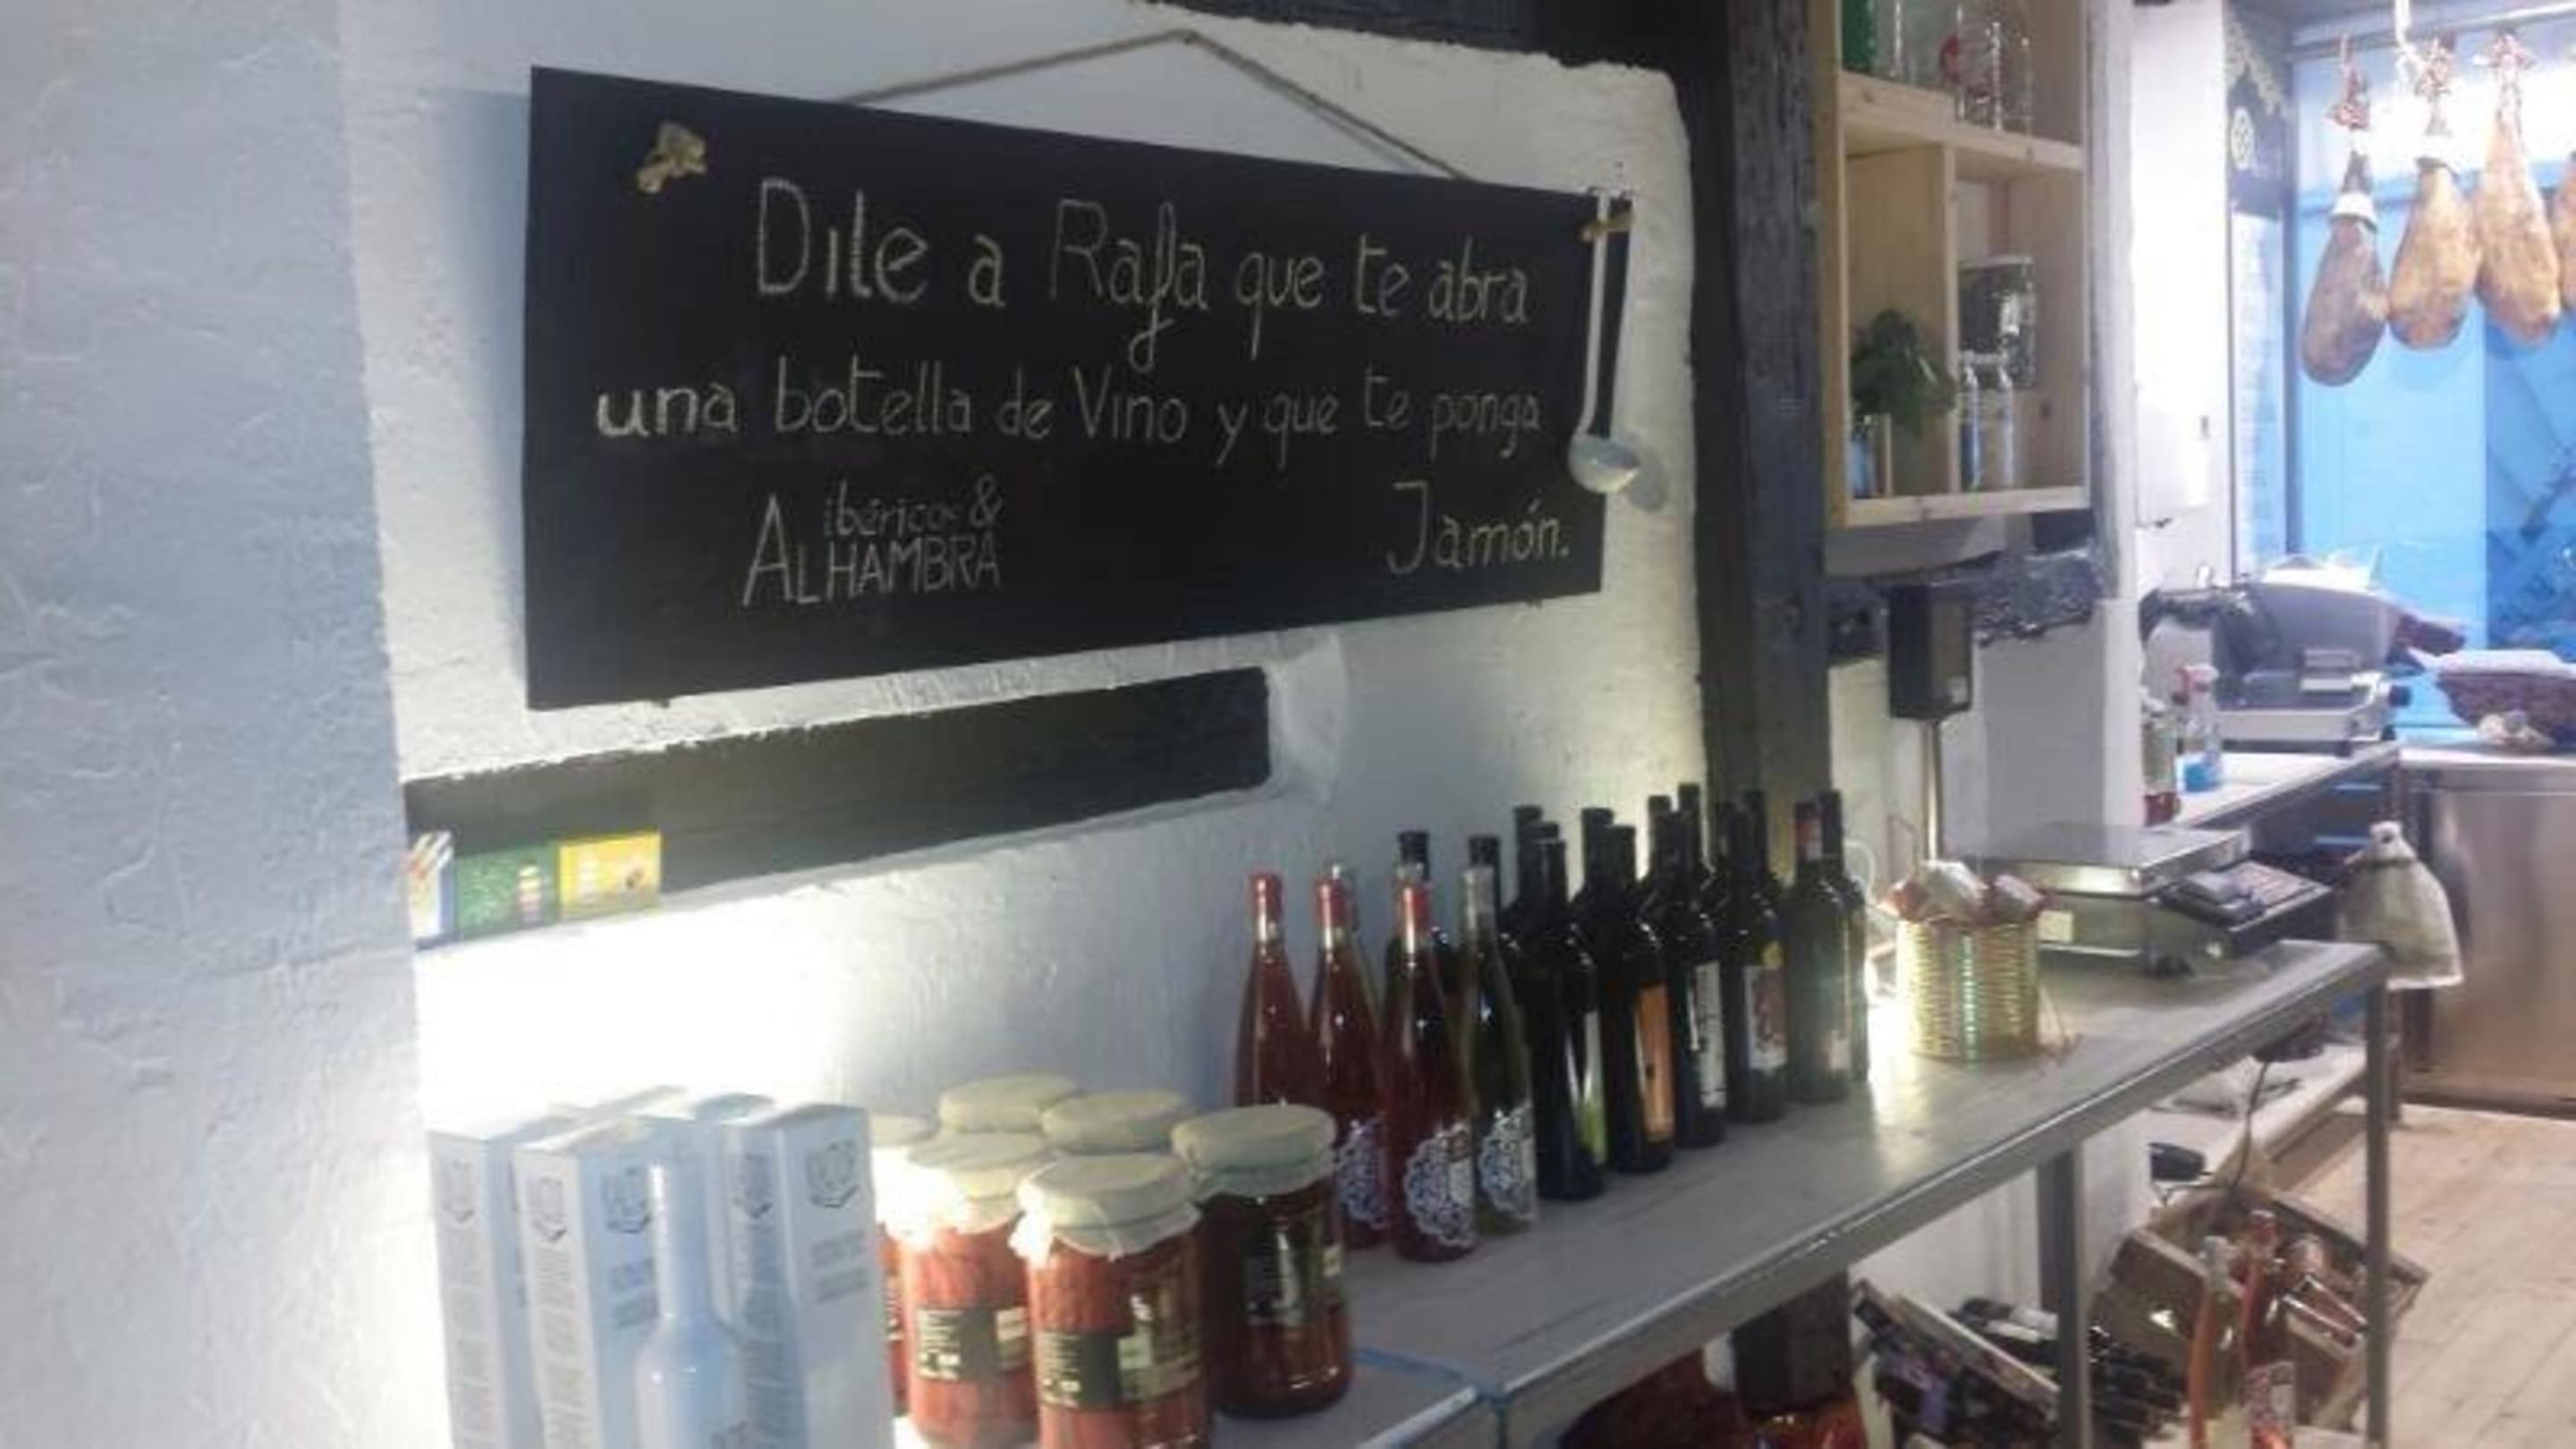 Dile a Rafa que te abra
una botella de Vino y que te ponga
Jamón.
ibérico &
ALHAMBRA